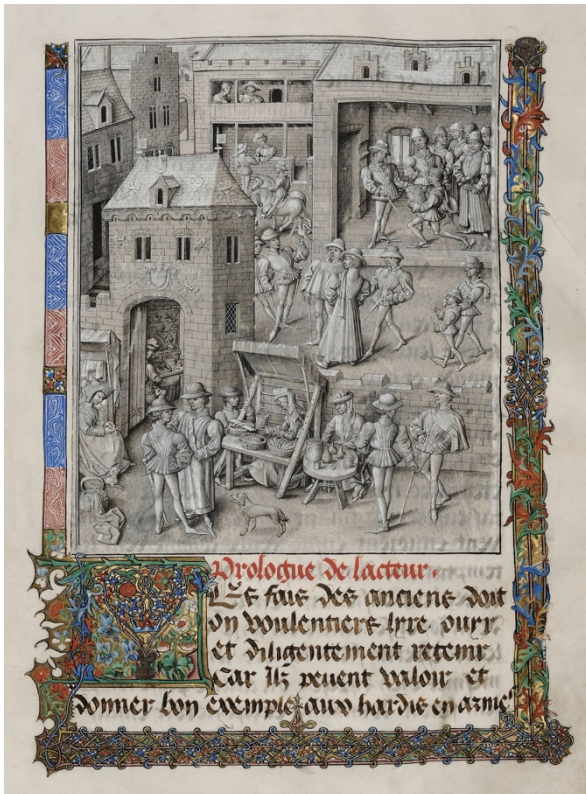 Prologue de lacteur.
Les fais des anciens doit
on voulentiers lyre ouyr
et diligentement retenir
Car Ilz peuent valoir et
donner bon exemple aux hardis en arme